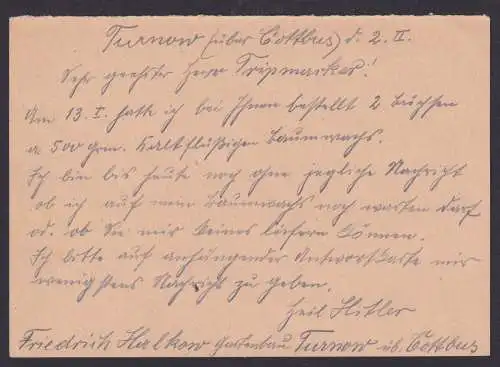 Turnow (über Cottbus) d. 2. II.
Sehr geehrter Herr Tripmacker!
Am 13. I. hatte ich bei Ihnen bestellt 2 Buchsen
a 500 grm. kaltflüßigen Baumwachs.
Ich bin bis heute noch ohne jegliche Nachricht
ob ich auf mein Baumwachs noch warten darf
od. ob Sie mir keines liefern können.
Ich bitte auf anhängender Antwortkarte mir
wenigstens Nachricht zu geben.
Heil Hitler
Friedrich Halkow Gartenbau Turnow üb. Cottbus